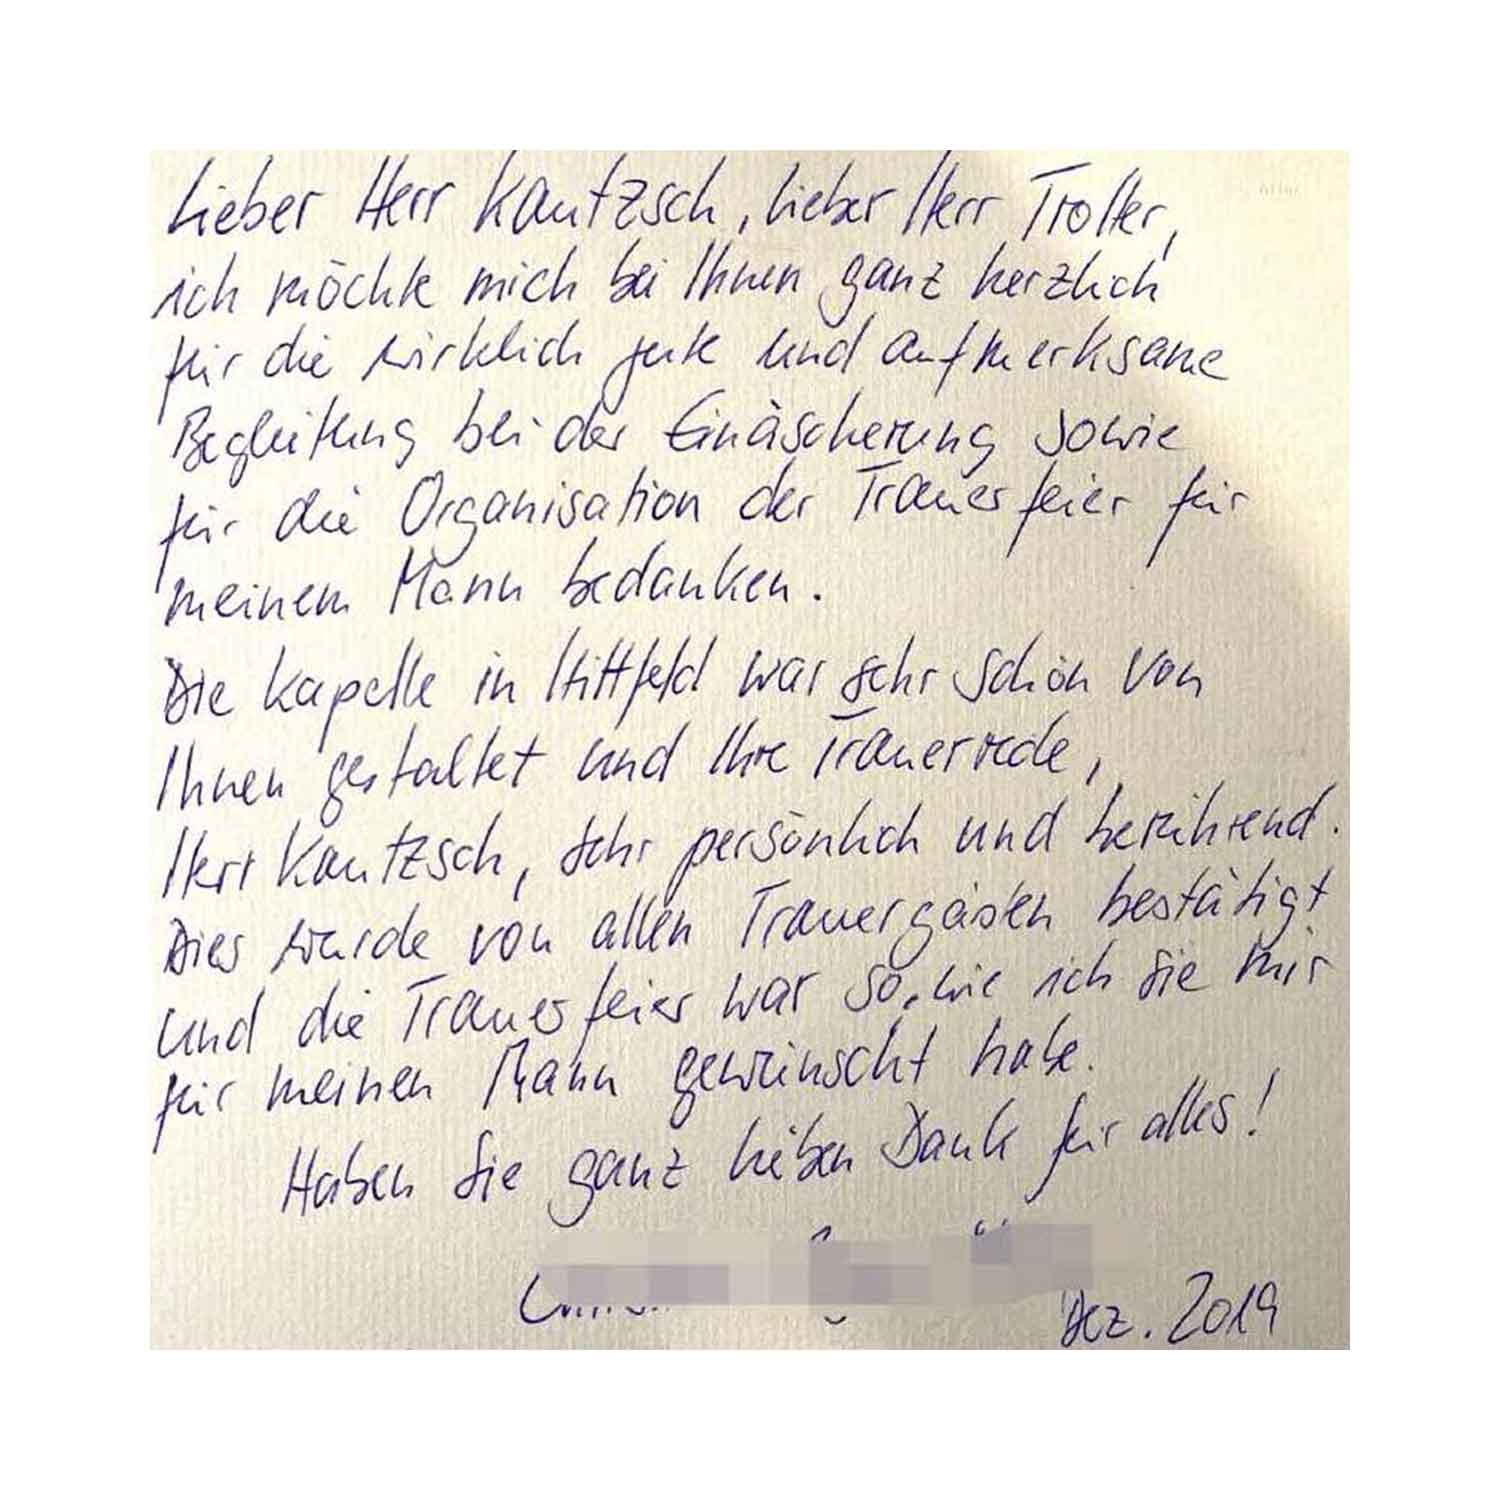 Lieber Herr Kautzsch, lieber Herr Troller,
ich möchte mich bei Ihnen ganz herzlich
für die wirklich gute und aufmerksame
Begleitung bei der Einäscherung sowie
für die Organisation der Trauerfeier für
meinem Mann bedanken.
Die Kapelle in Hittfeld war sehr schön von
Ihnen gestaltet und Ihre Trauerrede,
Herr Kautzsch, sehr persönlich und berührend.
Dies wurde von allen Trauergästen bestätigt
und die Trauerfeier war so, wie ich sie mir
für meinen Mann gewünscht habe.
Haben Sie ganz lieben Dank für alles!
Dez. 2019